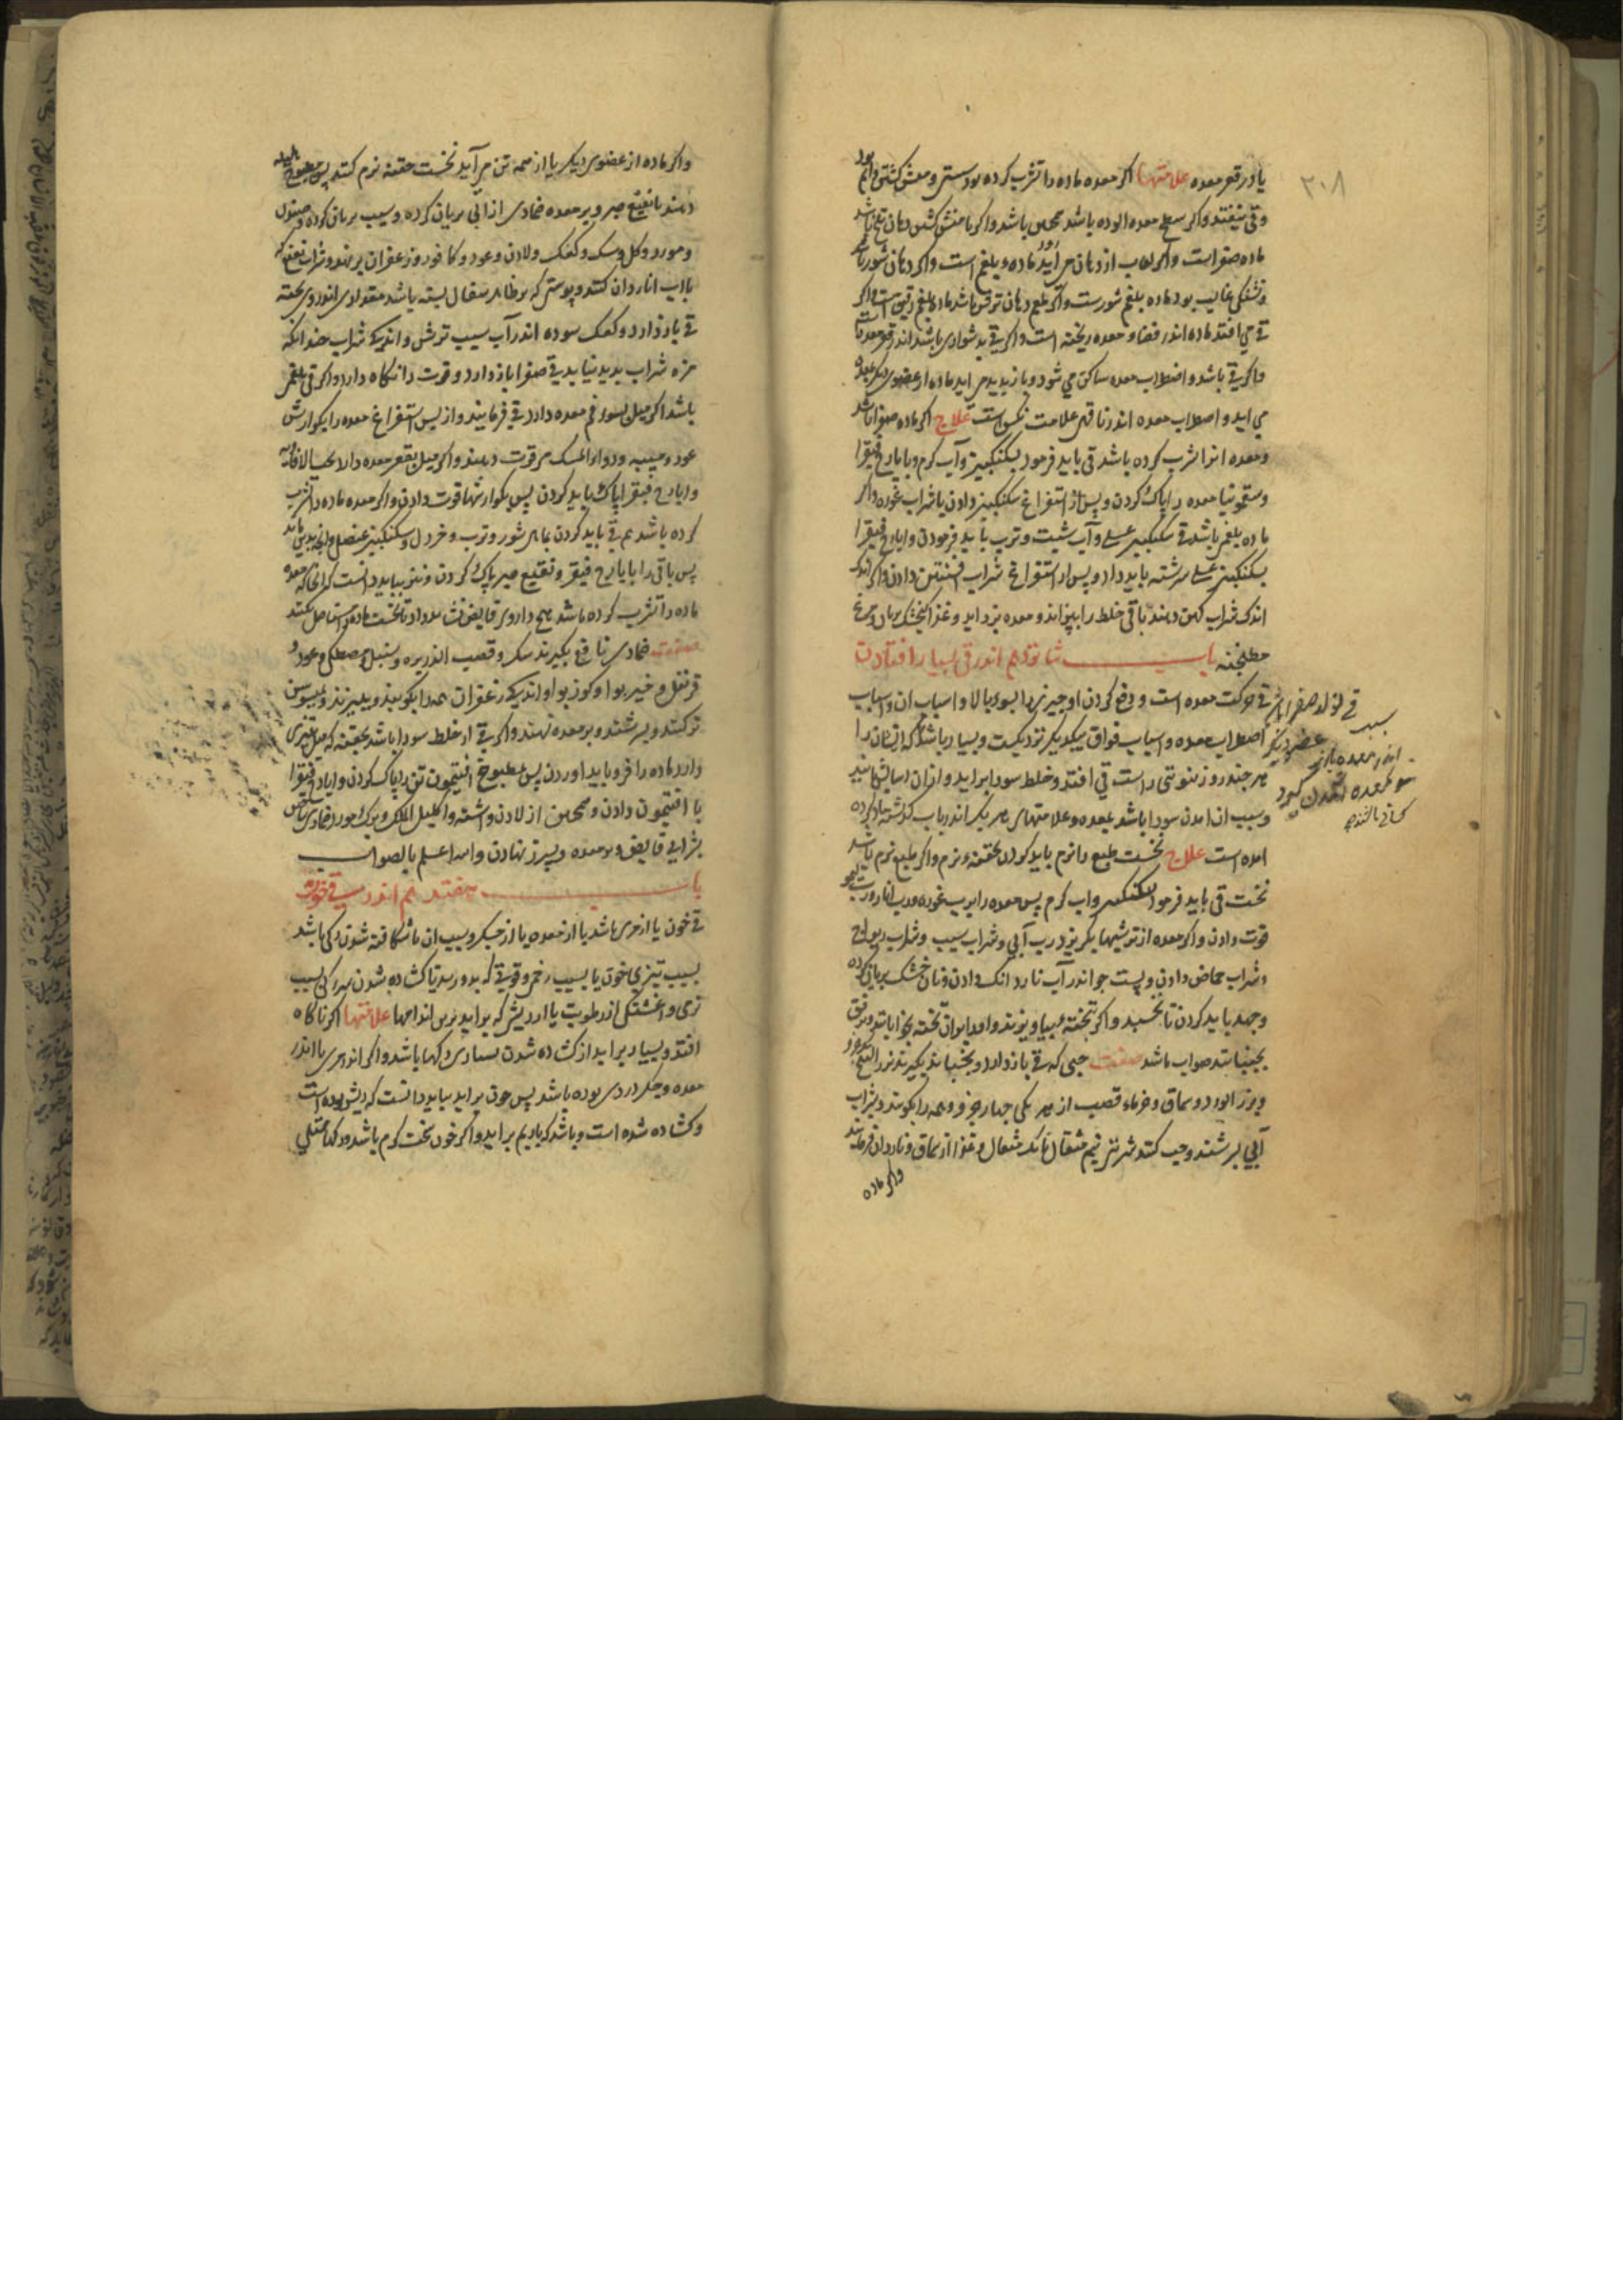 ۳۰۸
یا در قعر معده علامتها اکر معده ماده را تشرب کرده بود سستی و منش کشتن دایم بود
و قی نیفتد و اکر سطح معده الوده باشد همچنین باشد و اکر با منش کشتن دهان تلخ باشد
ماده صفراست و اکر لعاب از دهان می آید ماده بلغم است و اکر دهان شور باشد
و تشنکی غالب بود ماده بلغم شورست و اکر طعم دهان ترش باشد ماده بلغم رقیق است و اکر
قی می افتد ماده اندر فضاء معده ریخته است و اکر قی بدشواری باشد اندر قعر معده است
و اکر قی باشد و اضطراب معده ساکن می شود و باز پدید می اید ماده از عضوی دیکر بمعده
می اید و اضطراب معده اندر ناقه علامت نکس است علاج اکر ماده صفرا باشد
و معده انرا تشرب کرده باشد قی باید فرمود بسکنکبین و آب کرم و بایارج فیقرا
و سقمونیا معده را پاک کردن و پس از استفراغ سکنکبین دادن یا شراب غوره و اکر
ماده بلغم باشد قی سکنکبین عسلی و آب شبت و ترب باید فرمودن و ایارج فیقرا
بسکنکبین عسلی سرشته باید داد و پس از استفراغ شراب افسنتین دادن و اکر اندک
اندک شراب کهن دهند باقی خلط را بپزاند و معده بزداید و غذا کنجشک بریان و مرغ
مطنجنه باب شانزدهم اندر قی بسیار افتادن
قی حرکت معده است و دفع کردن او چیزی را بسوی بالا و اسباب ان و اسباب
اضطراب معده و اسباب فواق بیکدیکر نزدیکست و بسیار باشد که انسان را
هر چند روز بنوبتی راست قی افتد و خلط سودا براید و ازان اسایش یابد
و سبب ان امدن سودا باشد بمعده و علامتهای هر یک اندر باب کذشته یاد کرده
امده است علاج نخست طبع را نرم باید کردن بحقنه نرم و اکر طبع نرم باشد
نخست قی باید فرمود بسکنکبین و اب کرم پس معده را برب غوره و رب انار و رب لیمو
قوت دادن و اکر معده از ترشیها بکریزد رب آبی و شراب سیب و شراب ریواج
و شراب حماض دادن و پست جو اندر آب ناردانک دادن و نان خشک بریان کرده
و جهد باید کردن تا بخسبد و اکر تختهٔ بیاویزند و او را بران تخته بخوابانند و برفق
بجنبانند صواب باشد صفت حبی که قی باز دارد و بخسباند بکیرند بزر البنج
و بزر الورد و سماق و خرماء قصب از هر یکی چهار جزو و همه را بکوبند و بشراب
آبی بسرشند و حب کنند شربتی نیم مثقال تا یک مثقال و غذا از سماق و ناردان فرمایند
و اکر ماده
و اکر ماده از عضوی دیکر یا از همه تن می آید نخست حقنه نرم کنند پس مطبوخ هلیله
دهند یا نقیع صبر و بر معده ضمادی از آبی بریان کرده و سیب بریان کرده و صندل
و مورد و کل و سک و کعک و لادن و عود و کافور و زعفران برنهند و شراب نعنع که
باب اناردان کنند و پوستی که بر ظاهر سفال بسته باشد مقداری اندر وی پخته
قی باز دارد و کعک سوده اندر آب سیب ترش و اندکی شراب چندانکه
مزه شراب پدید نیاید قی صفرا باز دارد و قوت را نکاه دارد و اکر قی بلغمی
باشد اکر میل بسوی فم معده دارد قی فرمایند و از پس استفراغ معده را بکوارش
عود و میبه و دواء المسک قوت دهند و اکر میل بقعر معده دارد بحب الافاویه
و ایارج فیقرا پاک باید کردن پس بکوارشها قوت دادن و اکر معده ماده را تشرب
کرده باشد هم قی باید کردن بماهی شور و ترب و خردل و سکنکبین عنصلی و انچه بدین ماند
پس باقی را بایارج فیقرا و نقیع صبر پاک کردن و نیز بباید دانست که انجا که معده
ماده را تشرب کرده باشد هیچ داروی قابض نشاید داد تا نخست ماده را مستاصل نکنند
صفت ضمادی نافع بکیرند سک و قصب الذریره و سنبل و مصطکی و عود و
قرنفل و خیربوا و کوزبوا و اندکی زعفران همه را بکوبند و ببیزند و بمیسوسن
تر کنند و بسرشند و بر معده نهند و اکر قی از خلط سودا باشد بحقنه که میل تیزی
دارد ماده را فرو باید اوردن پس بمطبوخ افتیمون تن را پاک کردن و ایارج فیقرا
با افتیمون دادن و محجن از لادن و اشنه و اکلیل الملک و برک مورد ضمادی ساختن
بشرابی قابض و بر معده و سپرز نهادن والله اعلم بالصواب
باب هفتدهم اندر قی خون
قی خون یا از مری باشد یا از معده یا از جکر و سبب ان یا شکافته شدن رکی باشد
بسبب تیزی خون یا بسبب زخم و قوتی که بدو رسد یا کشاده شدن سر رکی بسبب
تری و اغشتکی از رطوبت یا از ریشی که براید برین اندامها علامتها اکر ناکاه
افتد و بسیار براید از کشاده شدن بسیاری رکها باشد و اکر اندر مری یا اندر
معده و جکر دردی بوده باشد پس خون براید بباید دانست که ریش بوده است
و کشاده شده است و باشد که با ریم براید و اکر خون سخت کرم باشد و رکها ممتلی